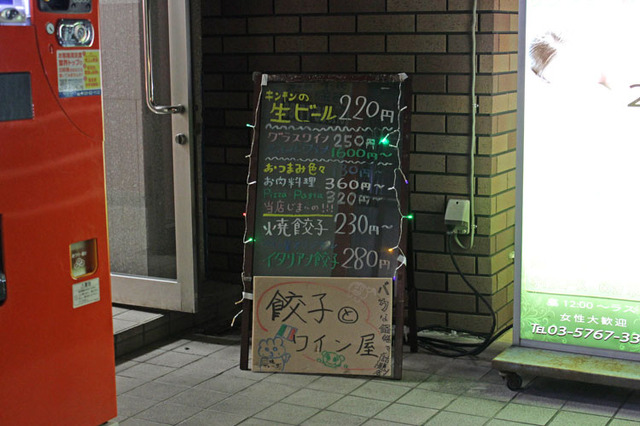 キンキンの
生ビール 220円
グラスワイン 250円
1600円~
おつまみ色々
お肉料理 360円~
Pizza Pasta 320円
当店じまん!!!
焼餃子 230円~
イタリアン餃子 280円
餃子と
ワイン屋
12:00~
女性大歓迎
TEL 03-5767-33